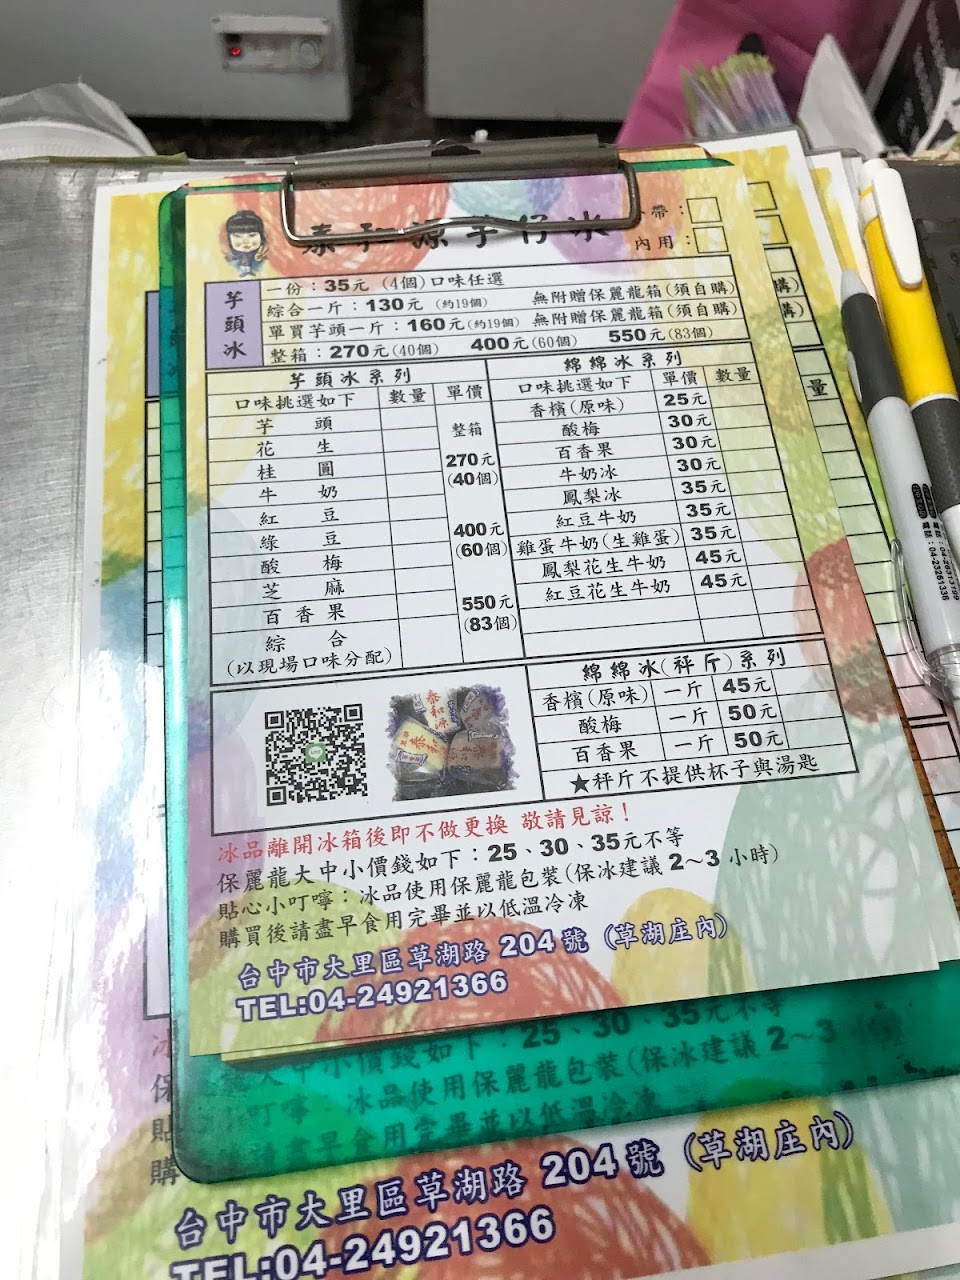 泰和源芋仔冰
帶：
內用：
芋頭冰
一份：35元 (4個) 口味任選
綜合一斤：130元 (約19個) 無附贈保麗龍箱(須自購)
單買芋頭一斤：160元(約19個) 無附贈保麗龍箱(須自購)
整箱：270元(40個) 400元(60個) 550元(83個)
芋頭冰系列
口味挑選如下 數量 單價
芋頭
花生
桂圓
牛奶
紅豆
綠豆
酸梅
芝麻
百香果
綜合
(以現場口味分配)
整箱
270元
(40個)
400元
(60個)
550元
(83個)
綿綿冰系列
口味挑選如下 單價 數量
香檳(原味) 25元
酸梅 30元
百香果 30元
牛奶冰 30元
鳳梨冰 35元
紅豆牛奶 35元
雞蛋牛奶(生雞蛋) 35元
鳳梨花生牛奶 45元
紅豆花生牛奶 45元
綿綿冰(秤斤)系列
香檳(原味) 一斤 45元
酸梅 一斤 50元
百香果 一斤 50元
★秤斤不提供杯子與湯匙
泰和源
冰品離開冰箱後即不做更換 敬請見諒！
保麗龍大中小價錢如下：25、30、35元不等
貼心小叮嚀：冰品使用保麗龍包裝(保冰建議2～3小時)
購買後請盡早食用完畢並以低溫冷凍
台中市大里區草湖路 204號 (草湖庄內)
TEL:04-24921366
購)
購)
量
大中小價錢如下：25、30、35元不等
叮嚀：冰品使用保麗龍包裝(保冰建議2～3
請盡早食用完畢並以低溫冷凍
冰
保
貼
購
台中市大里區草湖路 204號 (草湖庄內)
TEL:04-24921366